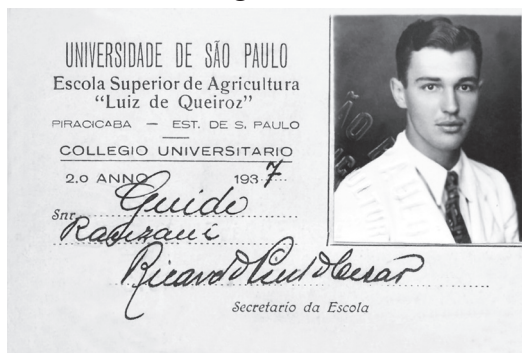 UNIVERSIDADE DE SÃO PAULO
Escola Superior de Agricultura
"Luiz de Queiroz"
PIRACICABA — EST. DE S. PAULO
COLLEGIO UNIVERSITARIO
2.o ANNO 1937
Snr. Guido
Secretario da Escola